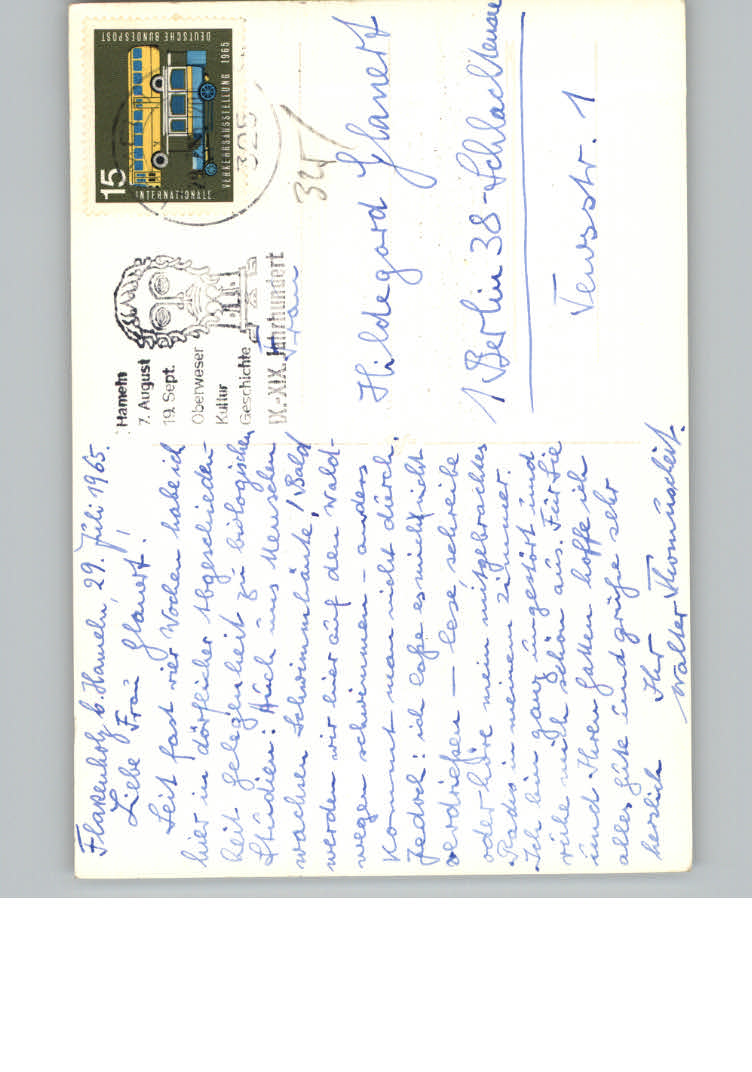 Flakenholz b. Hameln, 29. Juli 1965.
Liebe Frau Glauert!
Seit fast vier Wochen habe ich
hier in dörflicher Abgeschieden-
heit Gelegenheit zu biologischen
Studien: Auch uns Menschen
wachsen Schwimmhäute! Bald
werden wir hier auf den Wald-
wegen schwimmen – anders
kommt man nicht durch.
Jedoch: ich lasse es mich nicht
verdrießen — lese, schreibe
oder höre mein mitgebrachtes
Radio in meinem Zimmer.
Ich bin ganz ungestört und
ruhe mich schön aus. Für Sie
und Ihren Gatten hoffe ich
alles Gute und grüße sehr
herzlich Ihr
Walter
DEUTSCHE BUNDESPOST
15
INTERNATIONALE
VERKEHRSAUSSTELLUNG 1965
325
325
Hameln
7. August
19. Sept.
Oberweser
Kultur
Geschichte
IX.-XIX. Jahrhundert
Frau
Hildegard Glauert
1 Berlin 38-Schlachtensee
Tewsstr. 1